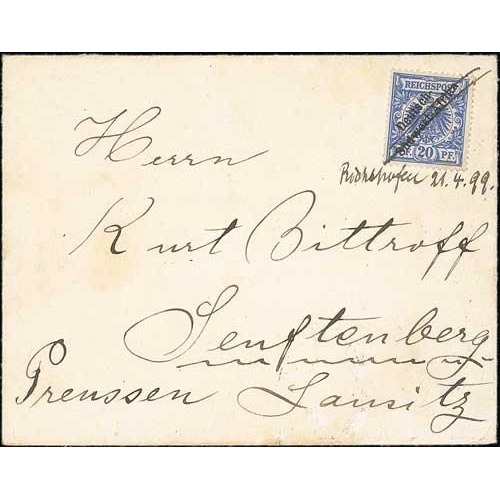 REICHSPOST
Deutsch-
Südwest-Afrika
PF. 20 PF.
21.4.99.
Herrn
Kurt Bittroff
Senftenberg
Preussen Lausitz